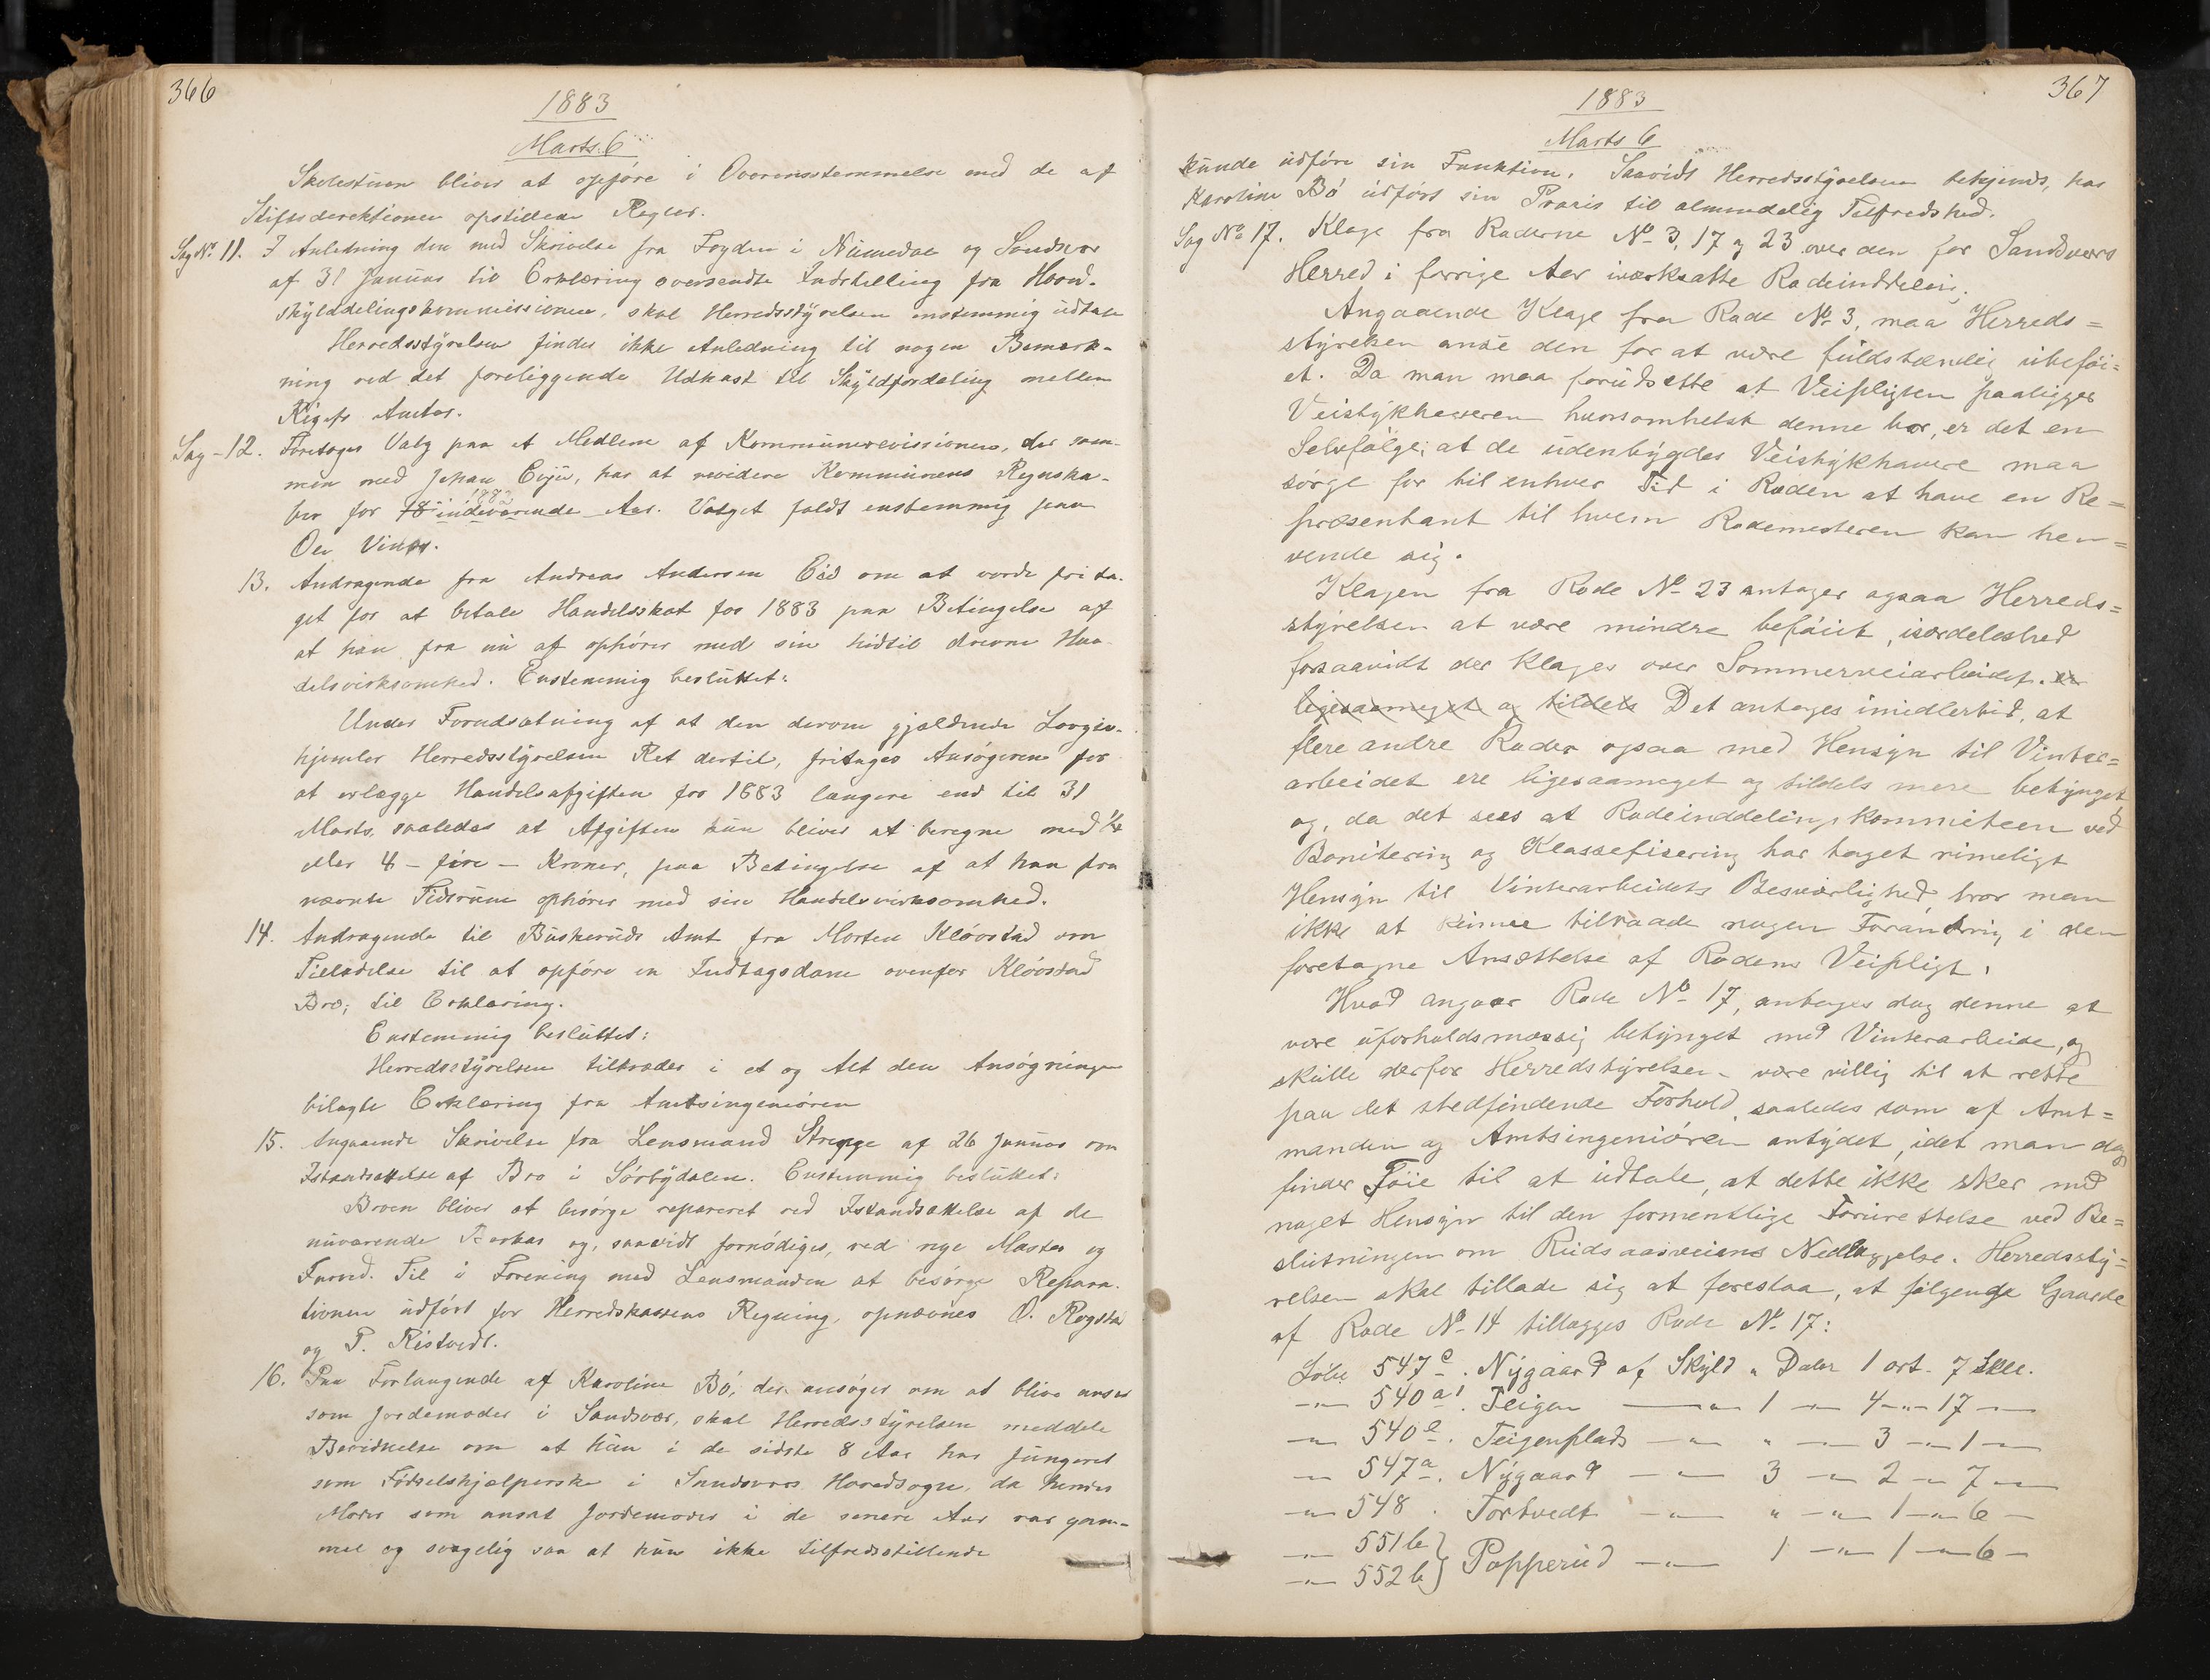 366
1883
Marts 6
Skolestuen bliver at opføre i Overensstemmelse med de af
Stiftsdirektionen opstillede Regler.
Sag No. 11. I Anledning den med Skrivelse fra Fogden i Numedal og Sandsvær
af 31 Januar til Erklæring oversendte Indstilling fra Hoved-
skylddelingskommissionen, skal Herredsstyrelsen enstemmig udtale
Herredsstyrelsen finder ikke Anledning til nogen Bemærk-
ning ved det foreliggende Udkast til Skyldfordeling mellem
Rigets Amter.
Sag - 12. Foretoges Valg paa et Medlem af Kommunerevisionen, der sam-
men med Johan Evju, har at revidere Kommunens Regnska-
ber for 1882 indeværende Aar. Valget faldt enstemmig paa
Ole Vinæs.
13. Andragende fra Andreas Andersen Eid om at vorde frita-
get for at betale Handelsskat for 1883 paa Betingelse af
at han fra nu af ophører med sin hidtil drevne Han-
delsvirksomhed. Enstemmig besluttet:
Under Forudsætning af at den derom gjældende Lovgiv-
hjemler Herredsstyrelsen Ret dertil, fritages Ansøgeren for
at erlægge Handelsafgiften for 1883 længere end til 31
Marts, saaledes at Afgiften kun bliver at beregne med 1/4
eller 4 - fire - Kroner, paa Betingelse af at han fra
nævnte Tidsrum ophører med sin Handelsvirksomhed.
14. Andragende til Buskeruds Amt fra Morten Kløvstad om
Tilladelse til at opføre en Indtagsdam ovenfor Kløvstad
Bro; til Erklæring.
Enstemmig besluttet:
Herredsstyrelsen tiltræder i et og Alt den Ansøgningen
bilagte Erklæring fra Amtsingeniøren
15. Angaaende Skrivelse fra Lensmand Strøyge af 26 Januar om
Istandsættelse af Bro i Sørbydalen. Enstemmig besluttet:
Broen bliver at besørge repareret ved Istandsættelse af de
nuværende Karkar og, saavidt fornødiges, ved nye Master og
Furud. Til i Forening med Lensmanden at besørge Repara-
tionen udført for Herredskassens Regning, opnævnes O. Rogsta
og P. Ristvedt.
16. Paa Forlangende af Karoline Bø, der ansøger om at blive ansat
som Jordemoder i Sandsvær, skal Herredsstyrelsen meddele
Bevidnelse om at hun i de sidste 8 Aar har fungeret
som Fødselshjælperske i Sandsværs Hovedsogn, da hendes
Moder som ansat Jordemoder i de senere Aar var gam-
mel og svagelig saa at hun ikke tilfredsstillende
367
1883
Marts 6
kunde udføre sin Funktion. Saavidt Herredsstyrelsen bekjendt, har
Karoline Bø udført sin Praxis til almindelig Tilfredshed.
Sag No. 17. Klage fra Roderne No. 3, 17 og 23 over den for Sandsværs
Herred i forrige Aar iværksatte Rodeinddeling.
Angaaende Klage fra Rode No. 3, maa Herreds=
styrelsen anse den for at være fuldstændig ubeføi=
et. Da man maa forudsætte at Veipligten paaligger
Veistykhaveren hvorsomhelst denne bor, er det en
Selvfølge, at de udenbygdes Veistykhavere maa
sørge for til enhver Tid i Roden at have en Re=
præsentant til hvem Rodemesteren kan hen=
vende sig.
Klagen fra Rode No. 23 antager ogsaa Herreds=
styrelsen at være mindre beføiet, isærdeleshed
forsaavidt der klages over Sommerveiarbeidet. er
ligesaameget og tildels Det antages imidlertid, at
flere andre Roder ogsaa med Hensyn til Vinter=
arbeidet ere ligesaameget og tildels mere betynget
og, da det sees at Rodeinddelingskommiteen ved
Bonitering og Klassefisering har taget rimeligt
Hensyn til Vinterarbeidets Besværlighed, tror man
ikke at kunne tilraade nogen Forandring i den
foretagne Ansættelse af Rodens Veipligt.
Hvad angaar Rode No. 17, antages dog denne at
være uforholdsmæssig betynget med Vinterarbeide, og
skulle derfor Herredstyrelsen være villig til at rette
paa det stedfindende Forhold, saaledes som af Amt=
manden og Amtsingeniøren antydet, idet man dog
finder Føie til at udtale, at dette ikke sker med
noget Hensyn til den formentlige Forurettelse ved Be=
slutningen om Rudsaasveiens Nedlæggelse. Herredssty=
relsen skal tillade sig at foreslaa, at følgende Gaarde
af Rode No. 14 tillægges Rode No. 17:
Løbe 547c. Nygaard af Skyld " Daler 1 ort. 7 Skll.
—"— 540a1. Teigen —"— 1 —"— 4 —"— 17 —"—
—"— 540e. Teigenplads —"— " —"— 3 —"— 1 —"—
—"— 547a. Nygaard —"— 3 —"— 2 —"— 7 —"—
—"— 548. Tortvedt —"— " —"— 1 —"— 6 —
—"— 551b } Popperud —"— 1 —"— 1 —"— 6 —
—"— 552b }